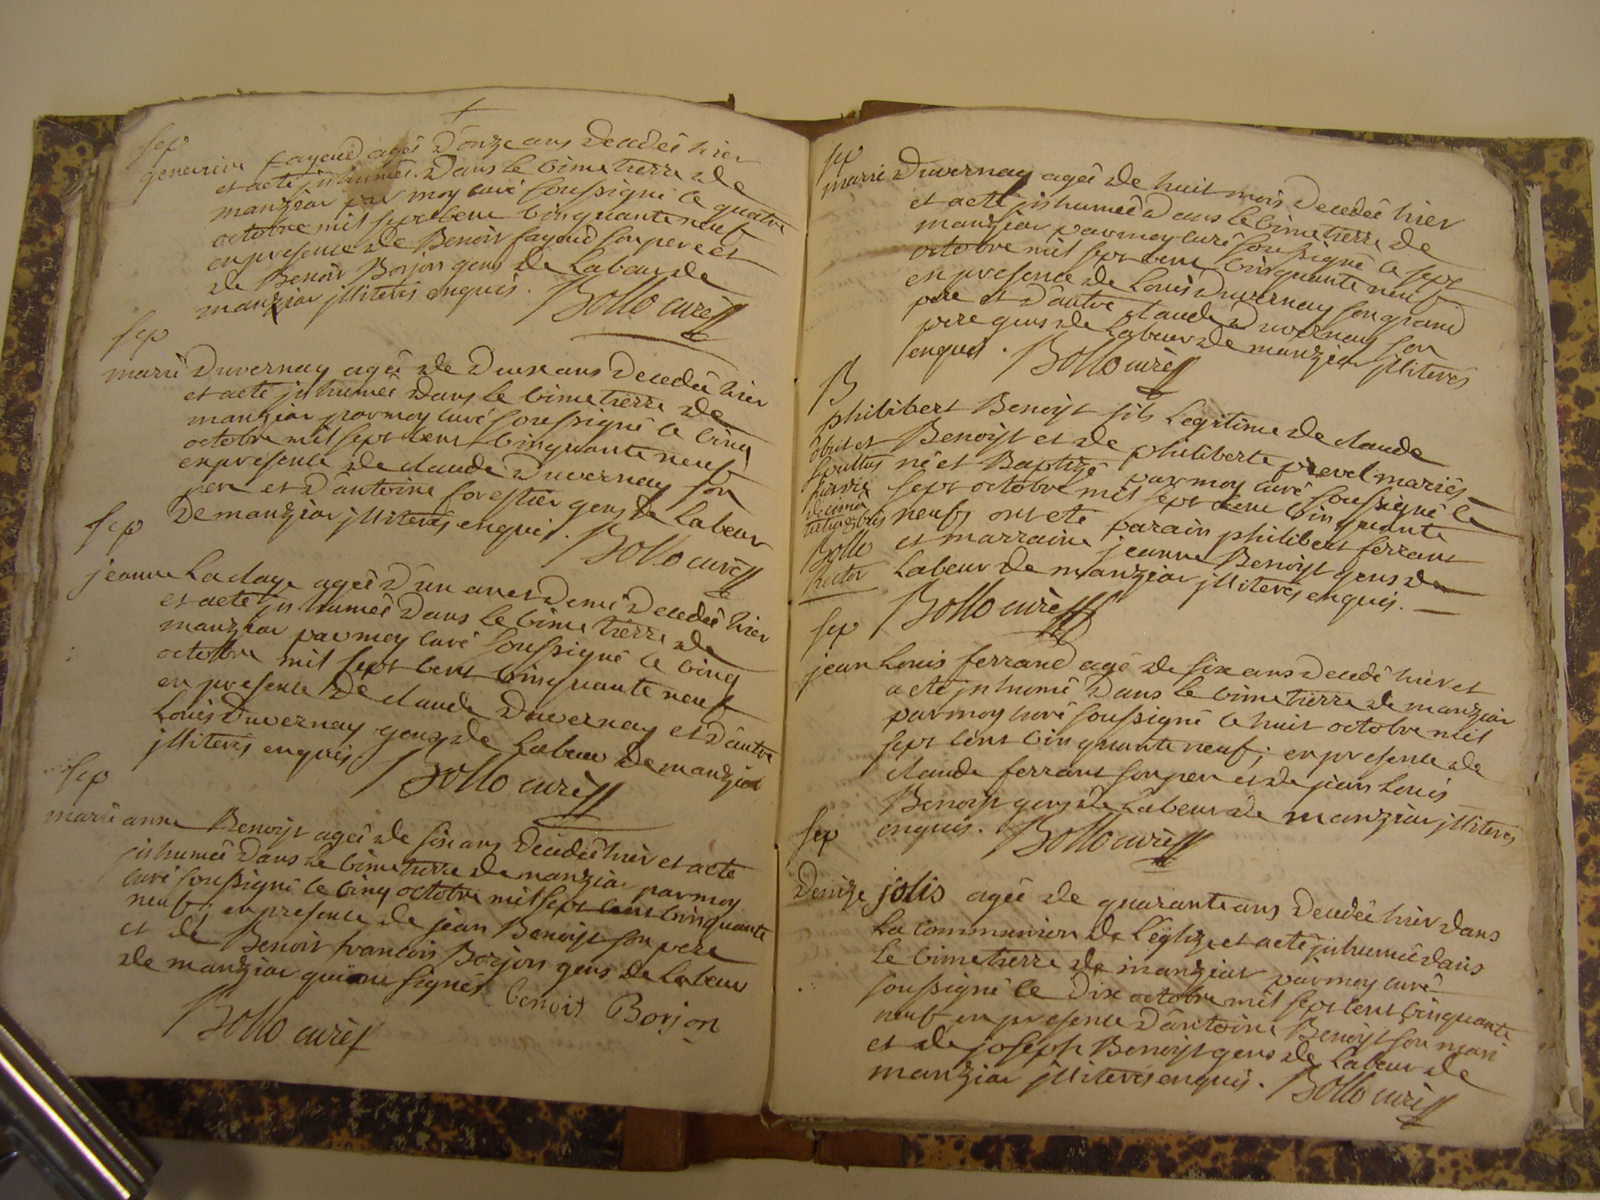 sep
genevieve fayoud agée d'onze ans decedée hier
et a eté jnhumée dans le cimetierre de
manziat par moy curé soussigné le quatre
octobre mil sept cent cinquante neuf
en presence de Benoit fayoud son pere et
de Benoit Borjon gens de labeur de
manziat jlliterés enquis. Bollo curé
sep
marie Duvernay agée de deux ans decedée hier
et a eté jnhumée dans le cimetierre de
manziat par moy curé soussigné le cinq
octobre mil sept cent cinquante neuf
en presence de claude Duvernay son
pere et d'antoine forestier gens de labeur
de manziat jlliterés enquis. Bollo curé
sep
jeanne la claye agée d'un an et demi decedée hier
et a eté jnhumée dans le cimetierre de
manziat par moy curé soussigné le cinq
octobre mil sept cent cinquante neuf
en presence de claude Duvernay et d'autre
Louis Duvernay gens de labeur de manziat
jlliterés enquis Bollo curé
sep
marie anne Benoist agée de six ans decedée hier et a eté
jnhumée dans le cimetierre de manziat par moy
curé soussigné le cinq octobre mil sept cent cinquante
neuf en presence de jean Benoist son pere
et de Benoit francois Borjon gens de labeur
de manziat qui ont signés
benoit Borjon
Bollo curé
sep
marie Duvernay agée de huit mois decedée hier
et a eté jnhumée dans le cimetierre de
manziat par moy curé soussigné le sept
octobre mil sept cent cinquante neuf
en presence de Louis Duvernay son grand
pere et d'autre claude Duvernay son
pere gens de labeur de manziat jlliterés
enquis. Bollo curé
B
philibert Benoist fils legitime de claude
Benoist et de philiberte prevel mariés
né et Baptizé par moy curé soussigné le
sept octobre mil sept cent cinquante
neuf, ont eté parain philibert ferrant
et marraine jeanne Benoist gens de
labeur de manziat jlliterés enquis.
Bollo curé
obiit et
sepultus
Bollo
rector
sep
jean Louis ferrand agé de six ans decedé hier et
a eté jnhumé dans le cimetierre de manziat
par moy curé soussigné le huit octobre mil
sept cent cinquante neuf; en presence de
claude ferrant son pere et de jean Louis
Benoist gens de labeur de manziat jlliterés
enquis. Bollo curé
sep
Denize jolis agée de quarante ans decedée hier dans
la communion de l'eglize et a eté jnhumée dans
le cimetierre de manziat par moy curé
soussigné le dix octobre mil sept cent cinquante
neuf en presence d'antoine Benoist son mari
et de joseph Benoist gens de labeur de
manziat jlliterés enquis. Bollo curé